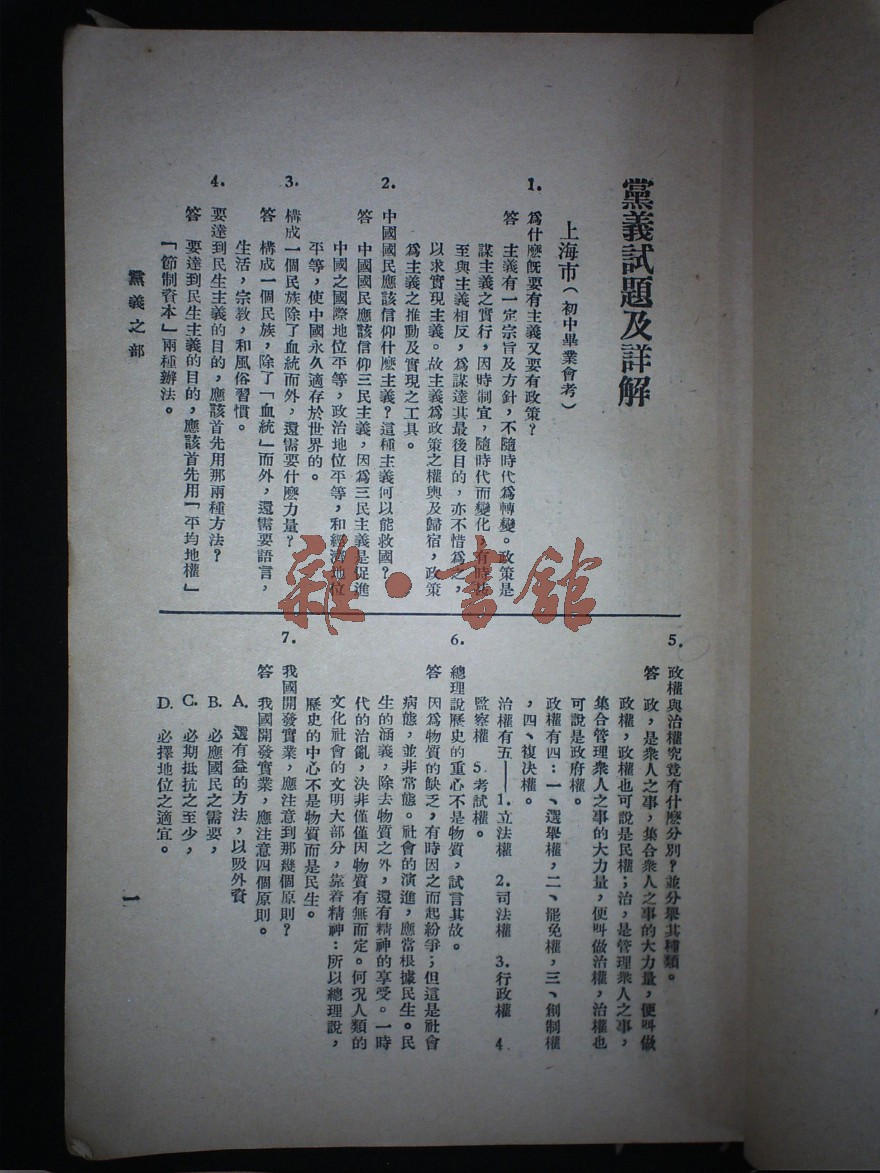 黨義試題及詳解
上海市（初中畢業會考）
1. 爲什麽旣要有主義又要有政策？
答 主義有一定宗旨及方針，不隨時代爲轉變。政策是
謀主義之實行，因時制宜，隨時代而變化，有時
至與主義相反，爲謀達其最後目的，亦不惜爲之，
以求實現主義。故主義爲政策之權輿及歸宿，政策
爲主義之推動及實現之工具。
2. 中國國民應該信仰什麽主義？這種主義何以能救國？
答 中國國民應該信仰三民主義，因爲三民主義是促進
中國之國際地位平等，政治地位平等，和經濟地位
平等，使中國永久適存於世界的。
3. 構成一個民族除了血統而外，還需要什麽力量？
答 構成一個民族，除了「血統」而外，還需要語言，
生活，宗敎，和風俗習慣。
4. 要達到民生主義的目的，應該首先用那兩種方法？
答 要達到民生主義的目的，應該首先用「平均地權」
「節制資本」兩種辦法。
5. 政權與治權究竟有什麽分別？並分舉其種類。
答 政，是衆人之事，集合衆人之事的大力量，便叫做
政權，政權也可說是民權；治，是管理衆人之事，
集合管理衆人之事的大力量，便叫做治權，治權也
可說是政府權。
政權有四：一、選舉權，二、罷免權，三、創制權
，四、複決權。
治權有五——1.立法權 2.司法權 3.行政權 4.
監察權 5.考試權。
6. 總理說歷史的重心不是物質，試言其故。
答 因爲物質的缺乏，有時因之而起紛爭；但這是社會
病態，並非常態。社會的演進，應當根據民生。民
生的涵義，除去物質之外，還有精神的享受。一時
代的治亂，決非僅僅因物質有無而定。何況人類的
文化社會的文明大部分，靠着精神：所以總理說，
歷史的中心不是物質而是民生。
7. 我國開發實業，應注意到那幾個原則？
答 我國開發實業，應注意四個原則。
A. 選有益的方法，以吸外資
B. 必應國民之需要，
C. 必期抵抗之至少，
D. 必擇地位之適宜。
黨義之部
一
雜·書館